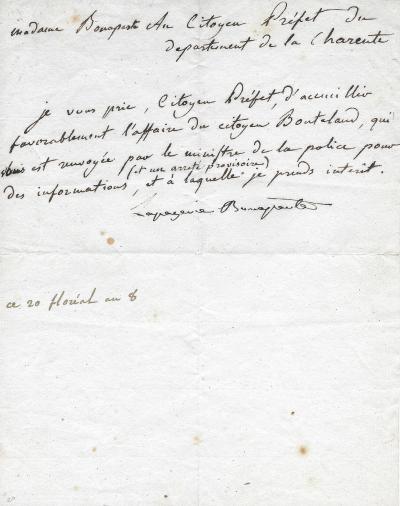 Madame Bonaparte Au Citoyen Préfet du
departement de la Charente
je vous prie, Citoyen Préfet, d'aceuillir
favorablement l'affaire du citoyen Bouteland, qui
vous est renvoyée par le ministre de la police pour
(et une arreté provisoire)
des informations, et à laquelle je prends interit.
Lapagerie Bonaparte
ce 20 floréal an 8